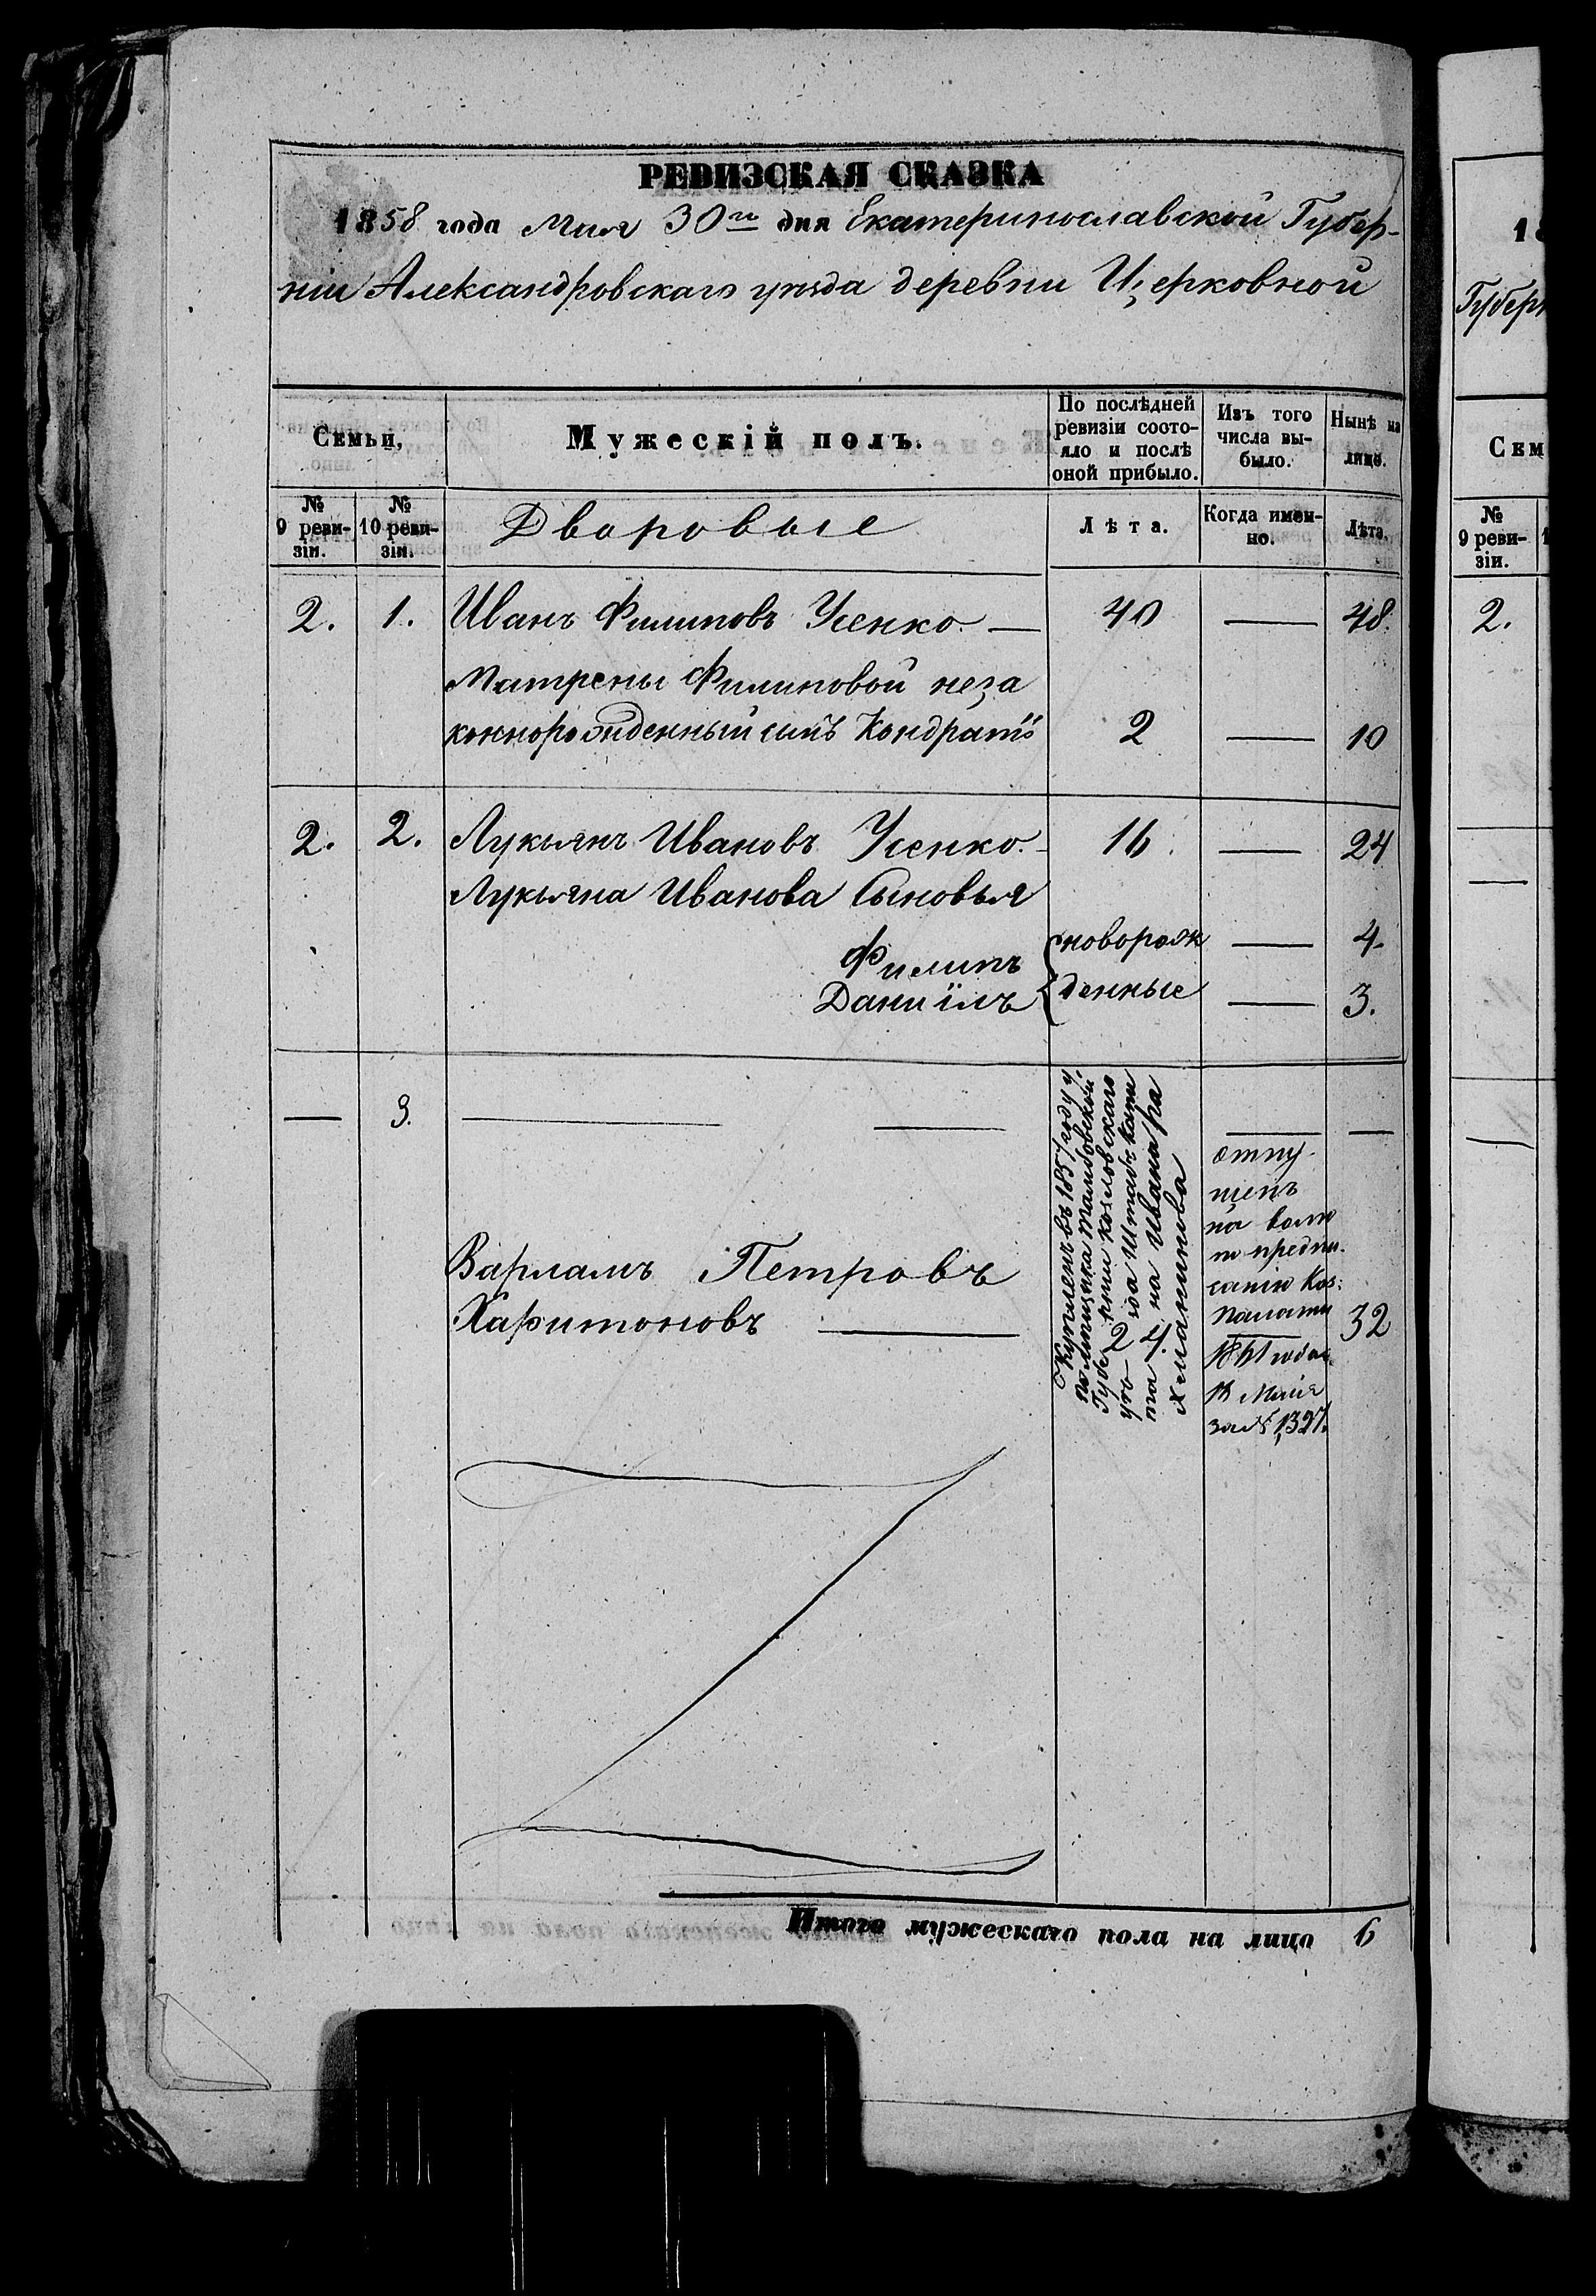 РЕВИЗСКАЯ СКАЗКА
1858 года Мая 30го дня Екатеринославской Губер-
нiи Александровскаго уѣзда деревни Церковной
Семьи,
Мужескiй полъ.
По послѣдней
ревизiи состо-
яло и послѣ
оной прибыло.
Изъ того
числа вы-
было.
Нынѣ на
лицо.
№
9 реви-
зiи.
№
10 реви-
зiи.
Дворовые
Лѣта.
Когда имен-
но.
Лѣта.
2. 1. Иванъ Филиповъ Усенко — 40 — 48.
Матрены Филиповой неза
коннорожденный сынъ Кондратiй 2 — 10
2. 2. Лукьянъ Ивановъ Усенко. 16. — 24
Лукьяна Иванова Сыновья
Филипъ новорож — 4.
Данiилъ денные — 3.
— 3. — — — —
Купленъ въ 1857 году у
помещика Тамбовской
Губернии Козловскаго
уезда Штабъ капи
тана Ивана
24.
отпу-
щенъ
на волю
по предпи-
санiю Каз:
Палаты
Мая
за № 1397.
Варламъ Петровъ
Харитоновъ — 32
Итого мужескаго пола на лицо 6
18
Губерн
Сем
№
9 реви-
зiи.
2.